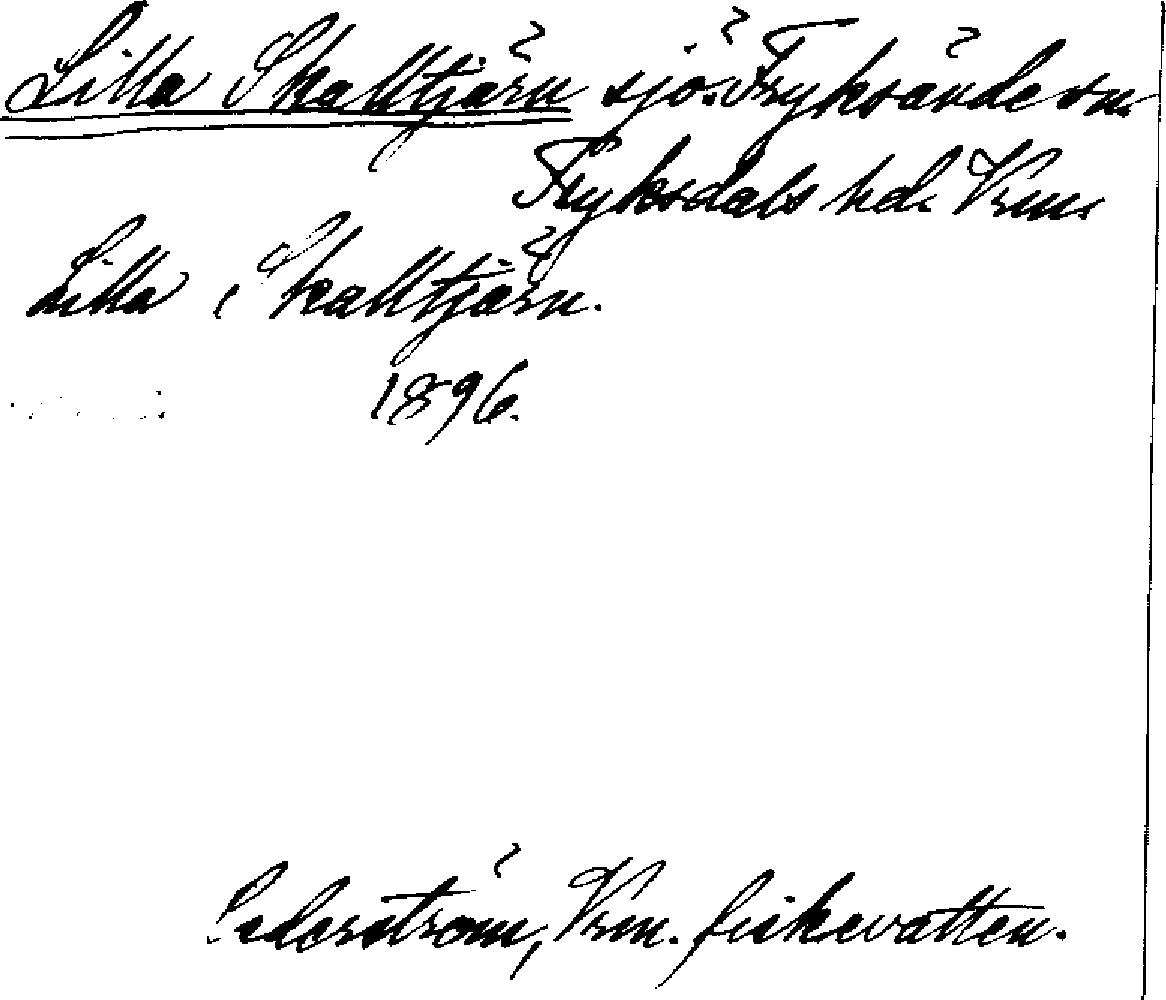 Lilla Skalltjärn sjö. Fryksände sn.
Fryksdals hd. Vrm.
Lilla Skalltjärn.
1896.
Cederström, Vrm. fiskevatten.